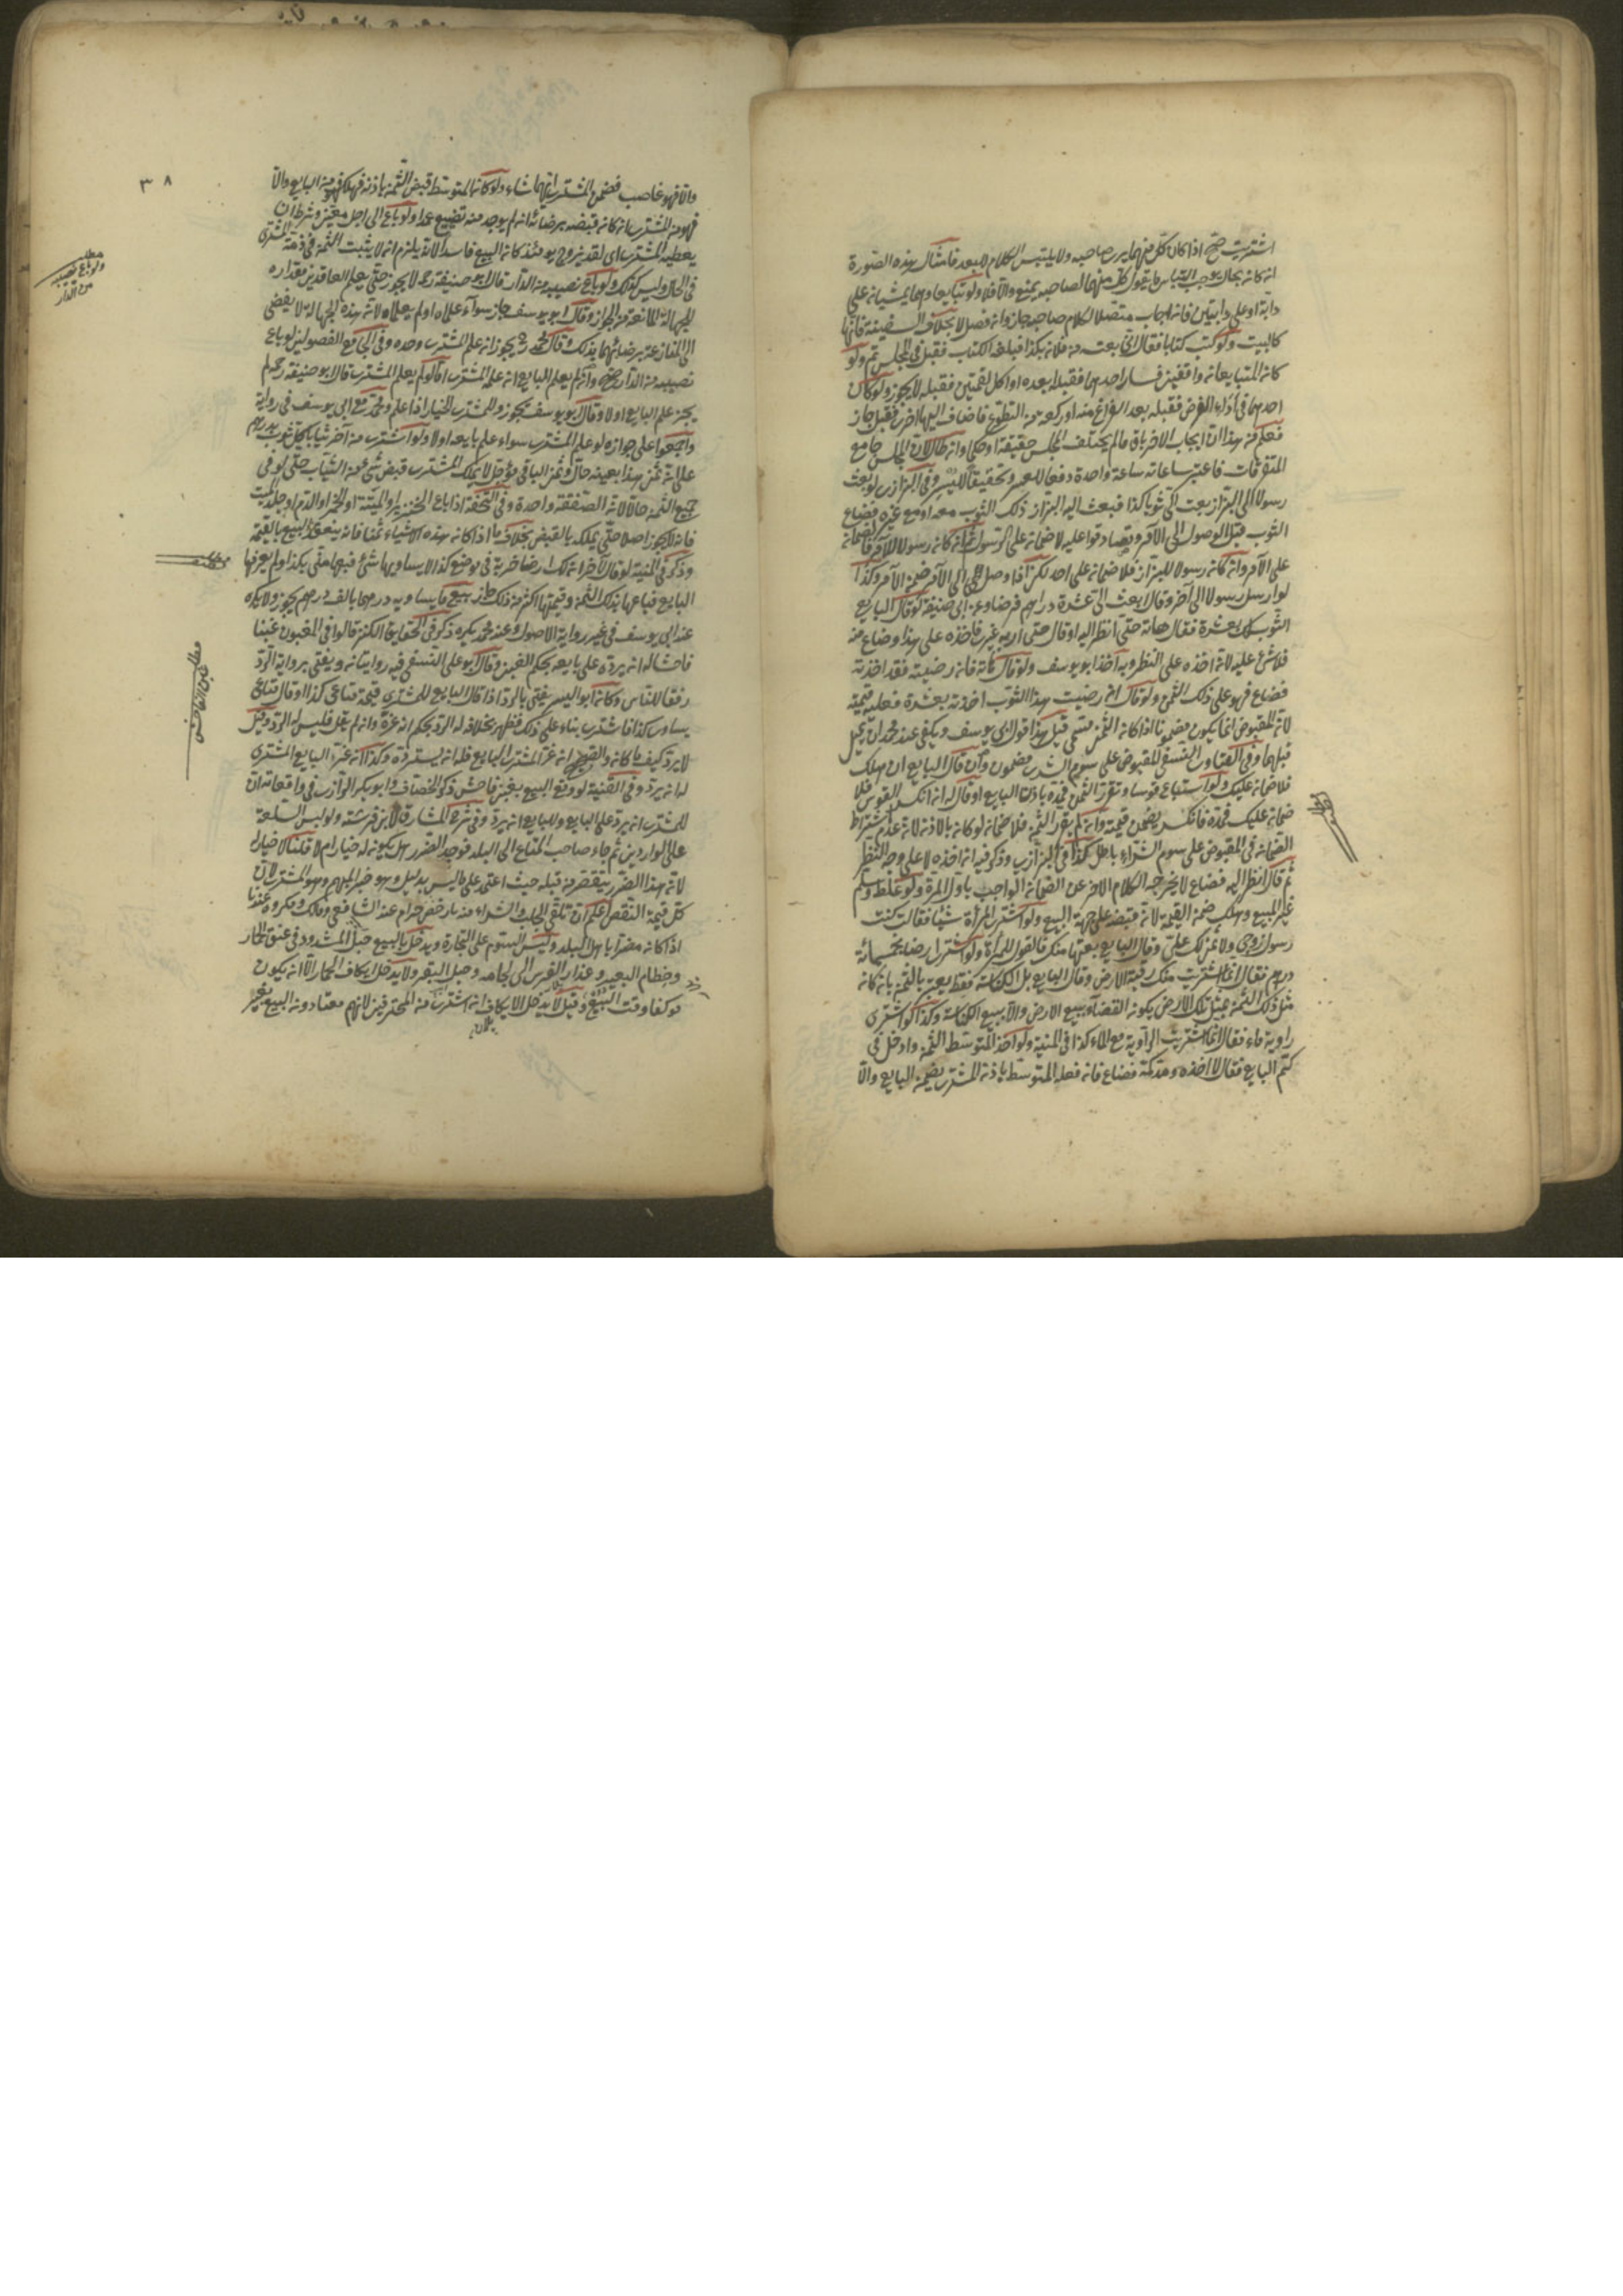 اشتريت صح اذا كان كل منهما يرى صاحبه ولا يلتبس الكلام للبعد فامثال هذه الصورة
انه كان بحال يوجب التباس ما يقول كل منهما لصاحبه يمنع والا فلا ولو تبايعا وهما يمشيان على
دابة او على دابتين فان اجاب متصلا لكلام صاحبه جاز وان فصل لا بخلاف السفينة فانها
كالبيت ولو كتب كتابا فقال اني بعت من فلان بكذا فبلغه الكتاب فقبل في المجلس تم ولو
كان المتبايعان واقفين فسار احدهما فقبله بعده او اكل لقمتين فقبله لا يجوز ولو كان
احدهما في اداء الفرض فقبله بعد الفراغ منه او ركعة من التطوع فاضاف اليها اخرى فقبل جاز
فعلم من هذا ان ايجاب الاخر باق ما لم يختلف المجلس حقيقة او حكما وان طال لان المجلس جامع
المتفرقات فاعتبر ساعاته ساعة واحدة دفعا للعسر وتحقيقا لليسر وفي البزازى لو بعث
رسولا الى البزاز بعث الى ثوبا كذا فبعث اليه البزاز ذلك الثوب معه او مع غيره فضاع
الثوب قبل الوصول الى الآمر وتصادقوا عليه لا ضمان على الرسول ثم ان كان رسولا للآمر فالضمان
على الآمر وان كان رسولا للبزاز فلا ضمان على احد لكن اذا وصل الى الآمر ضمن الآمر وكذا
لو ارسل رسولا الى آخر وقال ابعث الى عشرة دراهم قرضا وعن ابى حنيفة لو قال البايع
الثوب لك بعشرة فقال هاته حتى انظر اليه او قال حتى اريه غيرى فاخذه على هذا وضاع منه
فلا شئ عليه لانه اخذه على النظر وبه اخذ ابو يوسف ولو قال هاته فان رضيته فقد اخذته
فضاع فهو على ذلك الثمن ولو قال ان رضيت هذا الثوب اخذته بعشرة فعليه قيمته
لان المقبوض انما يكون مضمونا اذا كان الثمن مسمى قيل هذا قول ابى يوسف ويكفى عند محمد ان يميل
قبلهما وفي الفتاوى النسفى المقبوض على سوم الشرى مضمون وان قال البايع ان هلك
فلا ضمان عليك ولو استباع قوسا وتقرر الثمن فمده باذن البايع او قال له ان انكسر القوس فلا
ضمان عليك فمده فانكسر يضمن قيمته وان لم يقرر الثمن فلا ضمان لو كان بالاذن لانه عدم اشتراط
الضمان في المقبوض على سوم الشراء باطل كذا في البزازى وذكر فيه ان اخذه لا على وجه النظر
ثم قال انظر اليه فضاع لا يخرجه الكلام الاخر عن الضمان الواجب باول المرة ولو غلط وسلم
غير المبيع وهلك ضمن القيمة لانه قبضه على جهة البيع ولو اشترى امرأة شيئا فقالت كنت
رسول زوجي ولا ثمن لك على وقال البايع بعتها منك فالقول للمرأة ولو اشترى ارضا بخمسمائة
درهم فقال انما اشتريت منك رقبة الارض وقال البايع بل الكناسة فقط يعتبر بالثمن بان كان
مثل ذلك الثمن بمثل تلك الارض يكون القضاء ببيع الارض والا ببيع الكناسة وكذا لو اشترى
راوية ماء فقال انما اشتريت الراوية مع الماء كذا في المنية ولو اخذ المتوسط الثمن وادخل في
كم البايع فقال لا اخذه ومد كمه فضاع فان فعله المتوسط باذن المشترى يضمن البايع والا
٣٨
والا فهو غاصب فضمن المشترى ايهما شاء ولو كان المتوسط قبض الثمن باذنه فهلك فهو من البايع والا
فهو من المشترى ان كان قبضه برضائه ان لم يوجد منه تضييع عمدا ولو باع الى اجل معين وشرط ان
يعطيه المشترى اى نقد يروج يومئذ كان البيع فاسدا لانه يلزم ان لا يثبت الثمن في ذمة المشترى
في الحال وليس كذلك ولو باع نصيبه من الدار قال ابو حنيفة رح لا يجوز حتى يعلم العاقدين مقداره
للجهالة المانعة من الجواز وقال ابو يوسف جاز سواء علماه او لم يعلماه لان هذه الجهالة لا يفضى
الى المنازعة برضائهما بذلك وقال محمد رح يجوز ان علم المشترى وحده وفي جامع الفصولين لو باع
نصيبه من الدار صح وان لم يعلم البايع ان علم المشترى اما لو لم يعلم المشترى قال ابو حنيفة رح لم
يجز علم البايع اولا وقال ابو يوسف يجوز وللمشترى الخيار اذا علم ومحمد مع ابى يوسف في رواية
واجمعوا على جوازه لو علم المشترى سواء علم بايعه اولا ولو اشترى من آخر ثيابا كل ثوب بدرهم
على ان ثمن هذا بعينه حال وثمن الباقى مؤجل لا يملك المشترى قبض شئ من الثياب حتى لو فى
جميع الثمن حالا لان الصفقة واحدة وفي التحفة اذا باع الخنزير او الميتة او الخمر او الدم او جلد الميت
فانه لا يجوز اصلا حتى لا يملكه بالقبض بخلاف ما اذا كان هذه الاشياء ثمنا فانه ينعقد البيع بالقيمة
وذكر في المنية لو قال لآخر ان لك ارضا خربة في موضع كذا لا يساويها شئ فبعها منى بكذا ولم يعرفها
البايع فباعها بذلك الثمن وقيمتها اكثر من ذلك جاز بيع ما يساويه درهما بالف درهم يجوز ولا يكره
عند ابى يوسف في غير رواية الاصول وعند محمد يكره ذكره في الحقايق الكنز قالوا في المغبون غبنا
فاحشا له ان يرده على بايعه بحكم الغبن وقال ابو على النسفى فيه روايتان ويفتى برواية الرد
رفقا للناس وكان ابو اليسر يفتى بالرد اذا قال البايع للمشترى قيمة متاعى كذا او قال متاعى
يساوى كذا فاشترى بناء على ذلك فظهر بخلافه له الرد بحكم انه غره وان لم يقل فليس له الرد وقيل
لا يرد كيف ما كان والصحيح ان غر المشترى البايع فله ان يسترده وكذا ان غر البايع المشترى
له ان يرد وفي القنية لو وقع البيع بغبن فاحش ذكر الخصاف وابو بكر الرازى في واقعاته ان
للمشترى ان يرد على البايع وللبايع ان يرد وفي شرح المشارق لابن فرشته ولو لبس السلعة
على الواردين ثم جاء صاحب المتاع الى البلد فوجد الضرر هل يكون له خيار ام لا قلنا لا خيار له
لان هذا الضرر بتقصير من قبله حيث اعتمد على ما ليس بدليل وهو خبر المبهم وهو المشترى لان
كل قيمة النقص اعلم ان تلقى الجلب والشراء منه بارخص حرام عند الشافعى ومالك ومكروه عندنا
اذا كان مضرا باهل البلد وليس السوم على التجارة ويدخل بالبيع حبل المشدود في عنق الحمار
وخطام البعير وعذار الفرس الى لجامه وحبل البقر ولا يدخل ايكاف الحمار الا ان يكون
موكفا وقت البيع وقيل لا يدخل الايكاف ان اشترى من المحترفين لانهم معتادون البيع بغير
مطلب
ولو باع نصيبه
من الدار
مطلب
غبن الفاحش